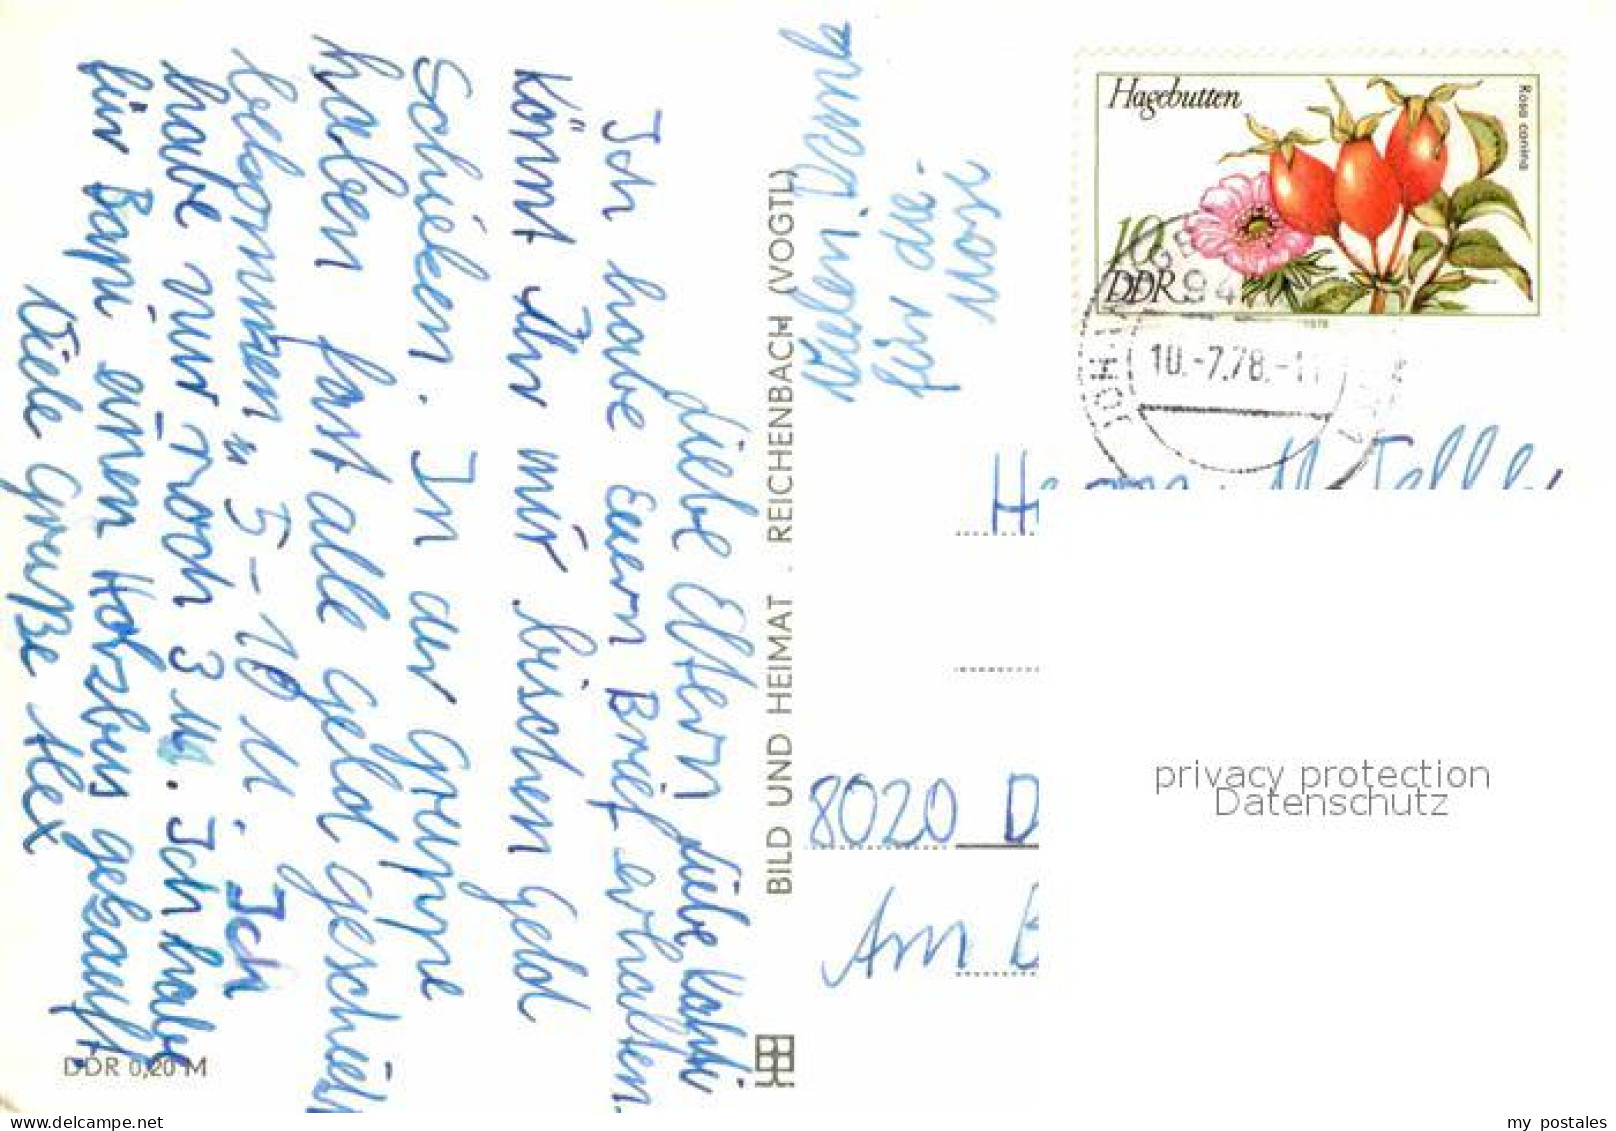 Liebe Eltern, liebe Kathi
Ich habe Euern Brief erhalten.
Könnt Ihr mir bischen Geld
Schicken. In der Gruppe
haben fast alle Geld geschickt
bekommen „ 5–10 M. Ich
habe nur noch 3 M. Ich habe
für Bapi einen Holzbus gekauft.
Viele Grüße Alex
Vielen Dank
für die
BILD UND HEIMAT . REICHENBACH (VOGTL)
DDR 0,20 M
Hagebutten
Rosa canina
10
DDR
1978
94
10.-7.78.-11
Herrn
8020 D
Am
privacy protection
Datenschutz
my postales